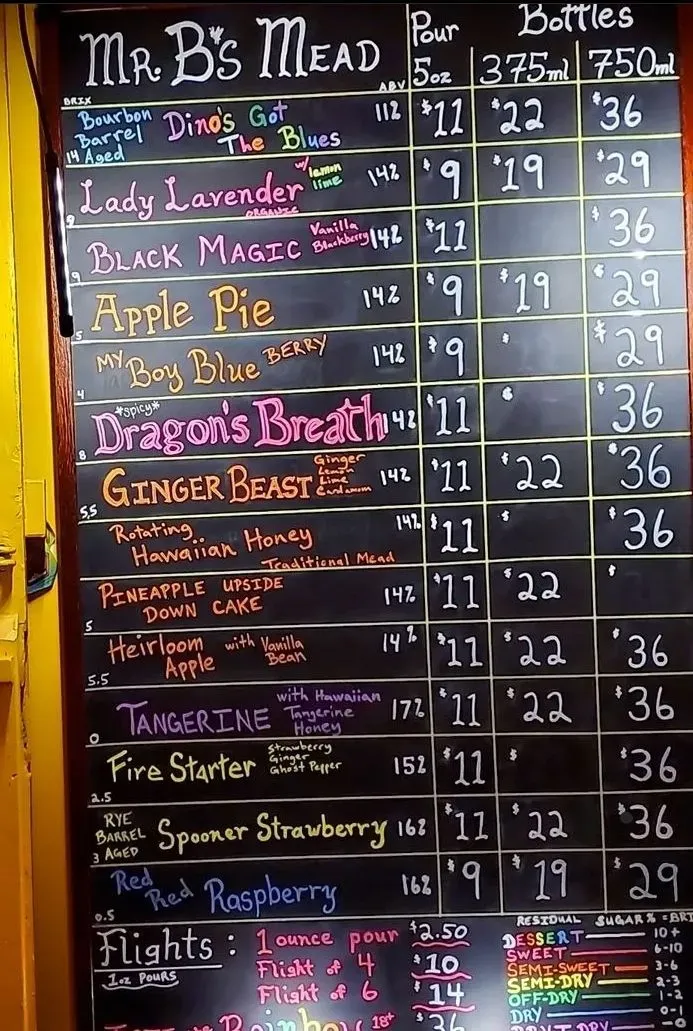 Mr. B's Mead
Pour 5oz
Bottles
375ml 750ml
BRIX ABV
Bourbon Barrel Aged Dino's Got The Blues 11% $11 $22 $36
14
Lady Lavender w/ lemon lime 14% $9 $19 $29
9 ORGANIC
Black Magic Vanilla Blackberry 14% $11 $36
9
Apple Pie 14% $9 $19 $29
5
My Boy Blue Berry 14% $9 $ $29
4
*spicy*
Dragon's Breath 14% $11 $ $36
8
Ginger Beast Ginger Lemon Lime Cardamom 14% $11 $22 $36
5.5
Rotating Hawaiian Honey 14% $11 $ $36
Traditional Mead
Pineapple Upside Down Cake 14% $11 $22 $
5
Heirloom Apple with Vanilla Bean 14% $11 $22 $36
5.5
Tangerine with Hawaiian Tangerine Honey 17% $11 $22 $36
0
Fire Starter Strawberry Ginger Ghost Pepper 15% $11 $ $36
2.5
Rye Barrel Aged Spooner Strawberry 16% $11 $22 $36
3
Red Red Raspberry 16% $9 $19 $29
0.5
Flights: 1 ounce pour $2.50
1oz Pours Flight of 4 $10
Flight of 6 $14
Rainbow 18+ $36
RESIDUAL SUGAR% = BRI
DESSERT 10+
SWEET 6-10
SEMI-SWEET 3-6
SEMI-DRY 2-3
OFF-DRY 1-2
DRY 0-1